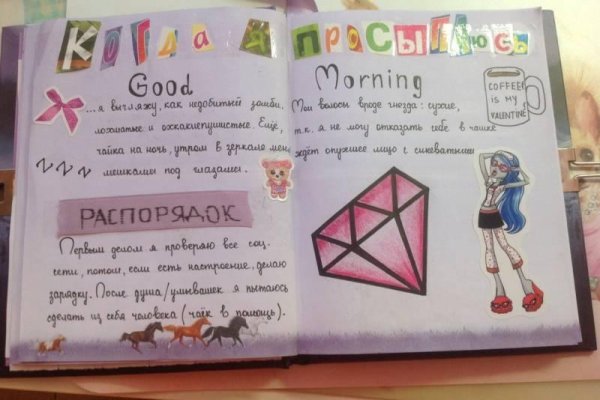 Когда я просыпаюсь
Good Morning
...я выгляжу, как недобитый зомби. Мои волосы вроде гнезда: сухие,
лохматые и охкаклепушистые. Ещё, т.к. я не могу отказать себе в чашке
чайка на ночь, утром в зеркале меня ждёт опухшее лицо с синеватыми
мешками под глазами.
z z z
COFFEE
IS MY
VALENTINE
РАСПОРЯДОК
Первым делом я проверяю все соц-
сети, потом, если есть настроение, делаю
зарядку. После душа/умывашек я пытаюсь
сделать из себя человека (чаёк в помощь).